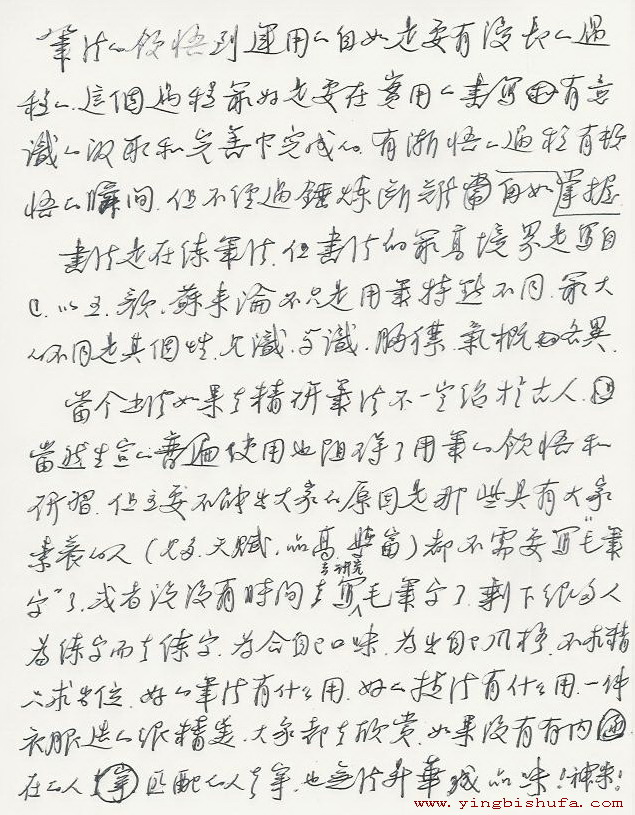 筆法的领悟到運用的自如是要有漫長的過
程的.這個過程最好是要在实用的書写中有意
識的汲取和完善中完成的.有渐悟的過程有頓
悟的瞬间.但不經過錘炼渐辨當再如掌握.
書法是在练筆法.但書法的最高境界是写自
己.以王.颜.蘇来論不只是用筆特點不同.最大
的不同是其個性.見識.学識.胸襟.氣概的各異.
當今書法如果去精研筆法不一定绐於古人.
當然生宣的普遍使用也阻碍了用筆的领悟和
研習.但主要不出大家的原因是那些具有大家
素養的人(如.天赋.品高.學富)都不需要写"毛筆
字"了.或者说没有時间去專研究写毛筆字了.剩下很多人
為练字而去练字.為合自己口味.為出自己風格.不求精
只求出位.好的筆法有什么用.好的技法有什么用.一件
衣服造的很精美.大家都去欣赏.如果没有有内
在的人 穿 匹配的人去穿.也無法昇華成品味!神采!
www.yingbishufa.com